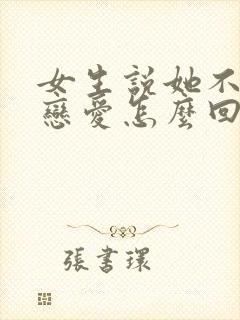 女生說她不
戀愛怎麼回
張書環